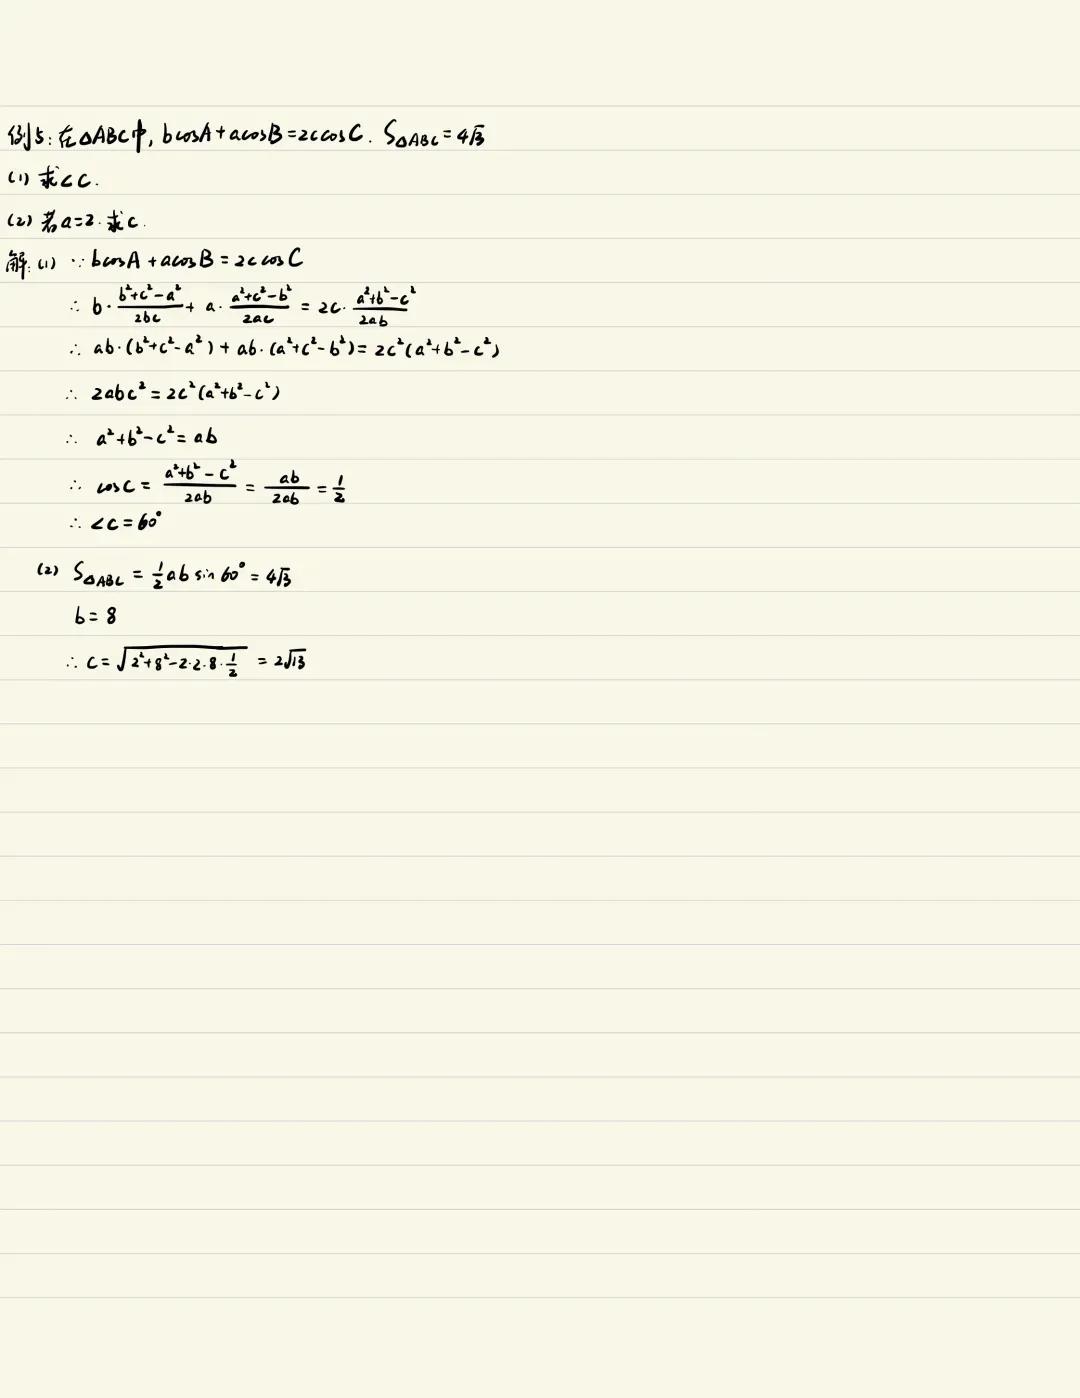 例5:在△ABC中, bcosA+acosB=2ccosC. S△ABC=4√3
(1) 求∠C.
(2) 若a=2.求c.
解:(1) ∵ bcosA+acosB=2ccosC
∴ b·(b²+c²-a²)/(2bc) + a·(a²+c²-b²)/(2ac) = 2c·(a²+b²-c²)/(2ab)
∴ ab·(b²+c²-a²)+ab·(a²+c²-b²)=2c²(a²+b²-c²)
∴ 2abc²=2c²(a²+b²-c²)
∴ a²+b²-c²=ab
∴ cosC=(a²+b²-c²)/(2ab)=ab/(2ab)=1/2
∴ ∠C=60°
(2) S△ABC=1/2absin60°=4√3
b=8
∴ c=√(2²+8²-2·2·8·1/2)=2√13